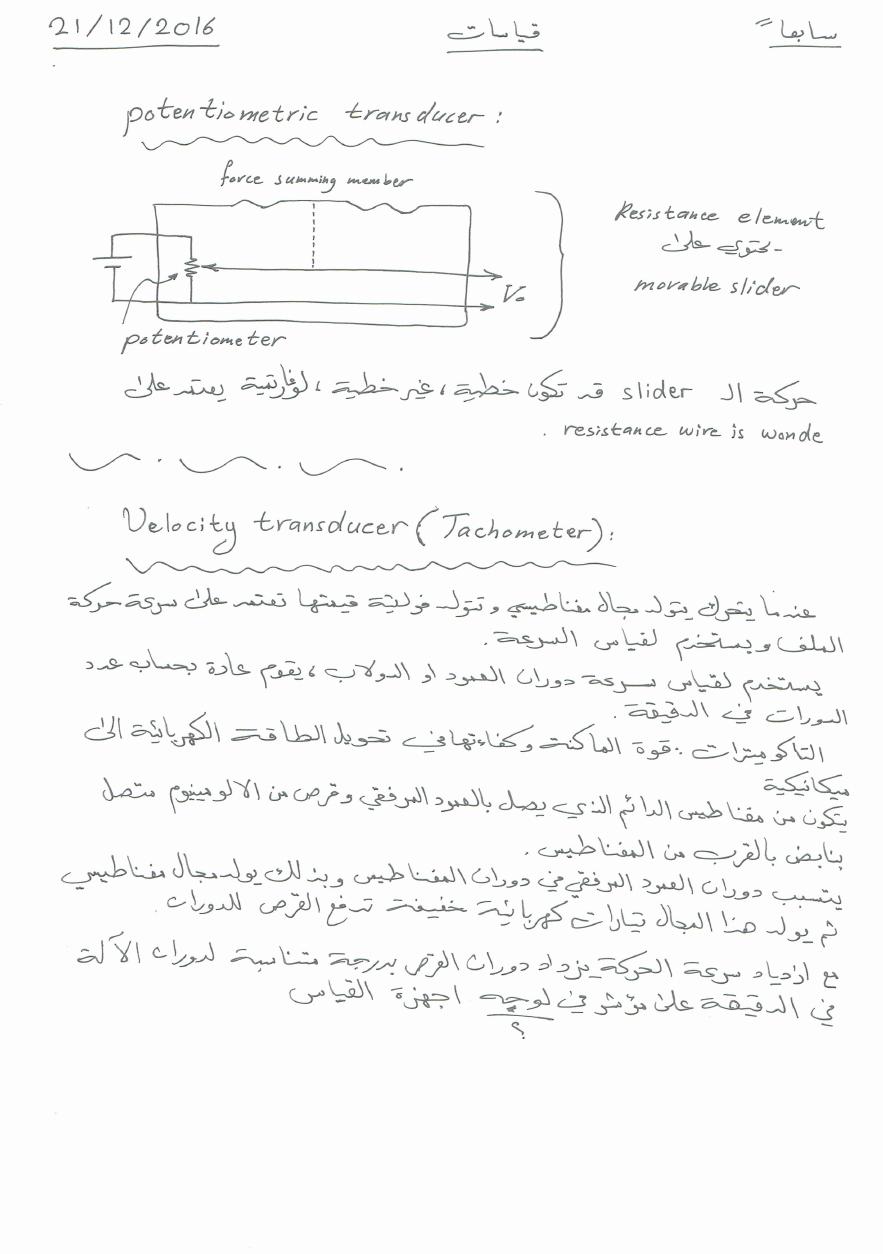 سابعاً قياسات 21/12/2016
potentiometric transducer :
force summing member
Resistance element
يحتوي على
movable slider
Vo
potentiometer
حركة الـ slider قد تكون خطية ، غير خطية ، لوغارتمية يعتمد على
resistance wire is wonde .
Velocity transducer (Tachometer) :
عندما يتحرك يتولد مجال مغناطيسي و تتولد فولتية قيمتها تعتمد على سرعة حركة
الملف ويستخدم لقياس السرعة .
يستخدم لقياس سرعة دوران العمود او الدولاب ، يقوم عادة بحساب عدد
الدورات في الدقيقة .
التاكوميترات : قوة الماكنة وكفاءتها في تحويل الطاقة الكهربائية الى
ميكانيكية
يتكون من مغناطيس الدائم الذي يصل بالعمود المرفقي وقرص من الالومينيوم متصل
بنابض بالقرب من المغناطيس .
يتسبب دوران العمود المرفقي في دوران المغناطيس وبذلك يولد مجال مغناطيسي
ثم يولد هذا المجال تيارات كهربائية خفيفة تدفع القرص للدوران .
مع ازدياد سرعة الحركة يزداد دوران القرص بدرجة متناسبة لدوران الآلة
في الدقيقة على مؤشر في لوحه اجهزة القياس
؟